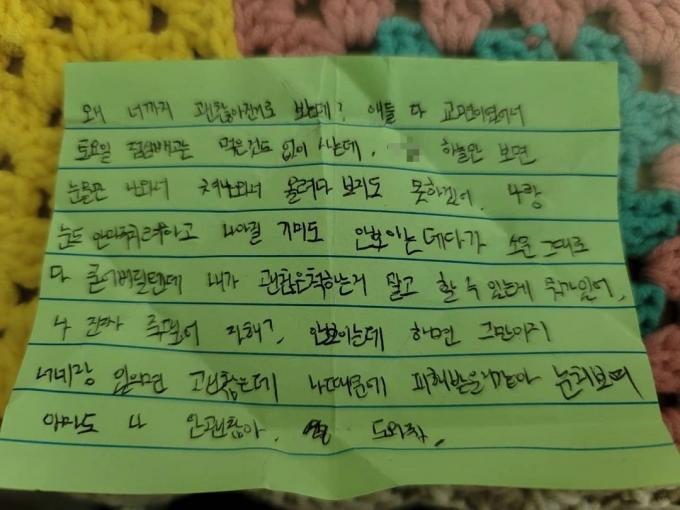 왜 너까지 괜찮아진거로 보는데? 애들 다
토요일 점심빼고는 먹은것도 없이 사는데. 하늘만 보면
눈물만 나와서 쳐나와서 올려다 보지도 못하겠어. 나랑
눈도 안마주치려하고 나아질 기미도 안보이는데다가 소문 그대로
다 믿어버릴텐데 내가 괜찮은척하는거 말고 할 수 있는게 뭐가있어.
나 진짜 죽었어 자해? 안보이는데 하면 그만이지
너네랑 있으면 괜찮은데 나때문에 피해받을거같아 눈치보여
아마도 나 안괜찮아. 도와줘.